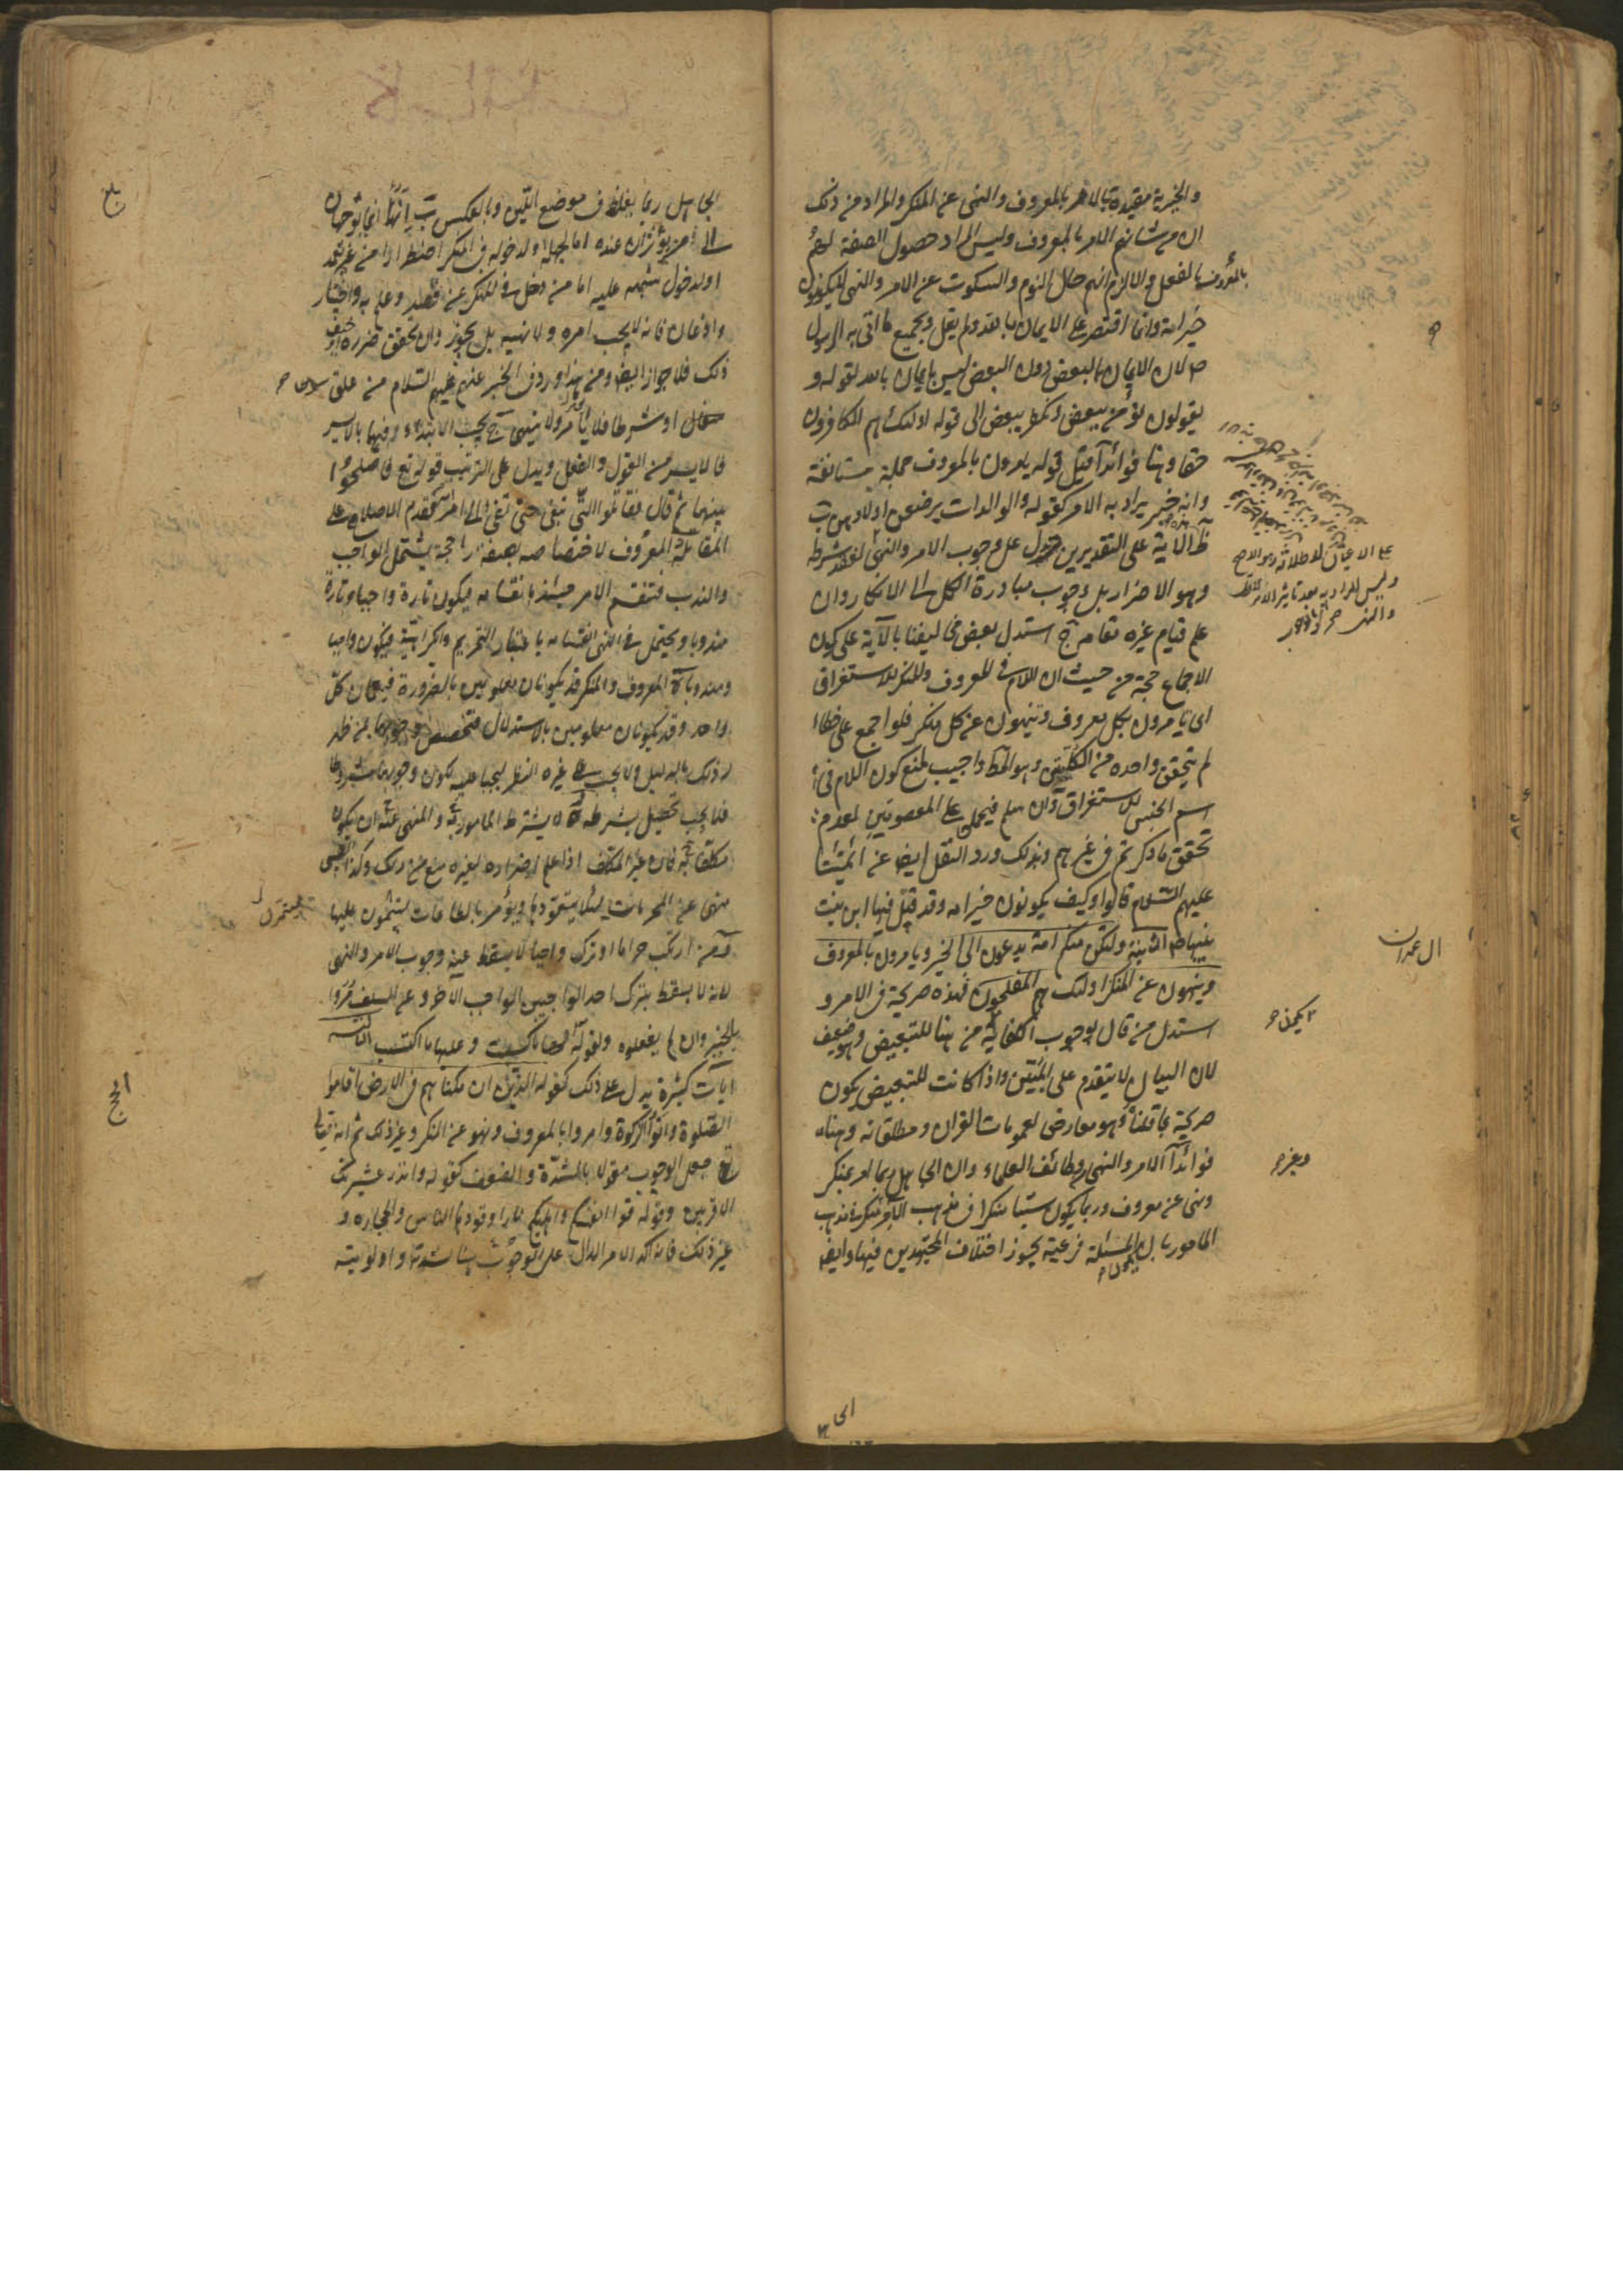 والخيرية مقيدة بالامر بالمعروف والنهى عن المنكر والمراد من ذلك
ان من شانهم الامر بالمعروف وليس المراد حصول الصفة لهم
بالفعل والا لزم انهم حال النوم والسكوت عن الامر والنهى لا يكونون
خير امة وانما اقتصر على الايمان بالله ولم يقل وبجميع ما اتى به الرسول
ص لان الايمان بالبعض دون البعض ليس بايمان بالله لقوله و
يقولون نؤمن ببعض ونكفر ببعض الى قوله اولئك هم الكافرون
حقا وهنا فوائد آ قيل قوله يامرون بالمعروف جملة مستانفة
وانه خبر يراد به الامر كقوله والوالدات يرضعن اولادهن ب
الآية على التقديرين على وجوب الامر والنهى
وهو الاضرار بل وجوب مبادرة الكل الى الانكار وان
علم قيام غيره مقامه ج استدل بعض مخاليفنا بالآية على كون
الاجماع حجة من حيث ان اللام فى المعروف والمنكر للاستغراق
اى تامرون بكل معروف وتنهون عن كل منكر فلو اجمع على خطاء
لم يتحقق واحدة من الكليتين وهو المط واجيب بمنع كون اللام فى
اسم الجنس للاستغراق وان سلم فيحمل على المعصومين لعدم
تحقق ما ذكرتم فى غيرهم وبذلك ورد النقل ايضا عن ائمتنا
عليهم السلام قالوا وكيف يكونون خير امة وقد قتل فيها ابن بنت
نبيها ص الثانية ولتكن منكم امة يدعون الى الخير ويامرون بالمعروف
وينهون عن المنكر اولئك هم المفلحون فهذه صريحة فى الامر و
استدل من قال بوجوب الكفاية من هنا للتبعيض وهو ضعيف
لان البيان لا يتقدم على المبين واذا كانت للتبعيض يكون
صريحة بما قلناه وهو معارض لعمومات القران ومطلقاته وهنا
فوائد آ الامر والنهى وظائف العلماء وان الجاهل ربما امر بمنكر
ونهى عن معروف وربما يكون شيئا منكرا فى مذهب الآمر غير منكر فى مذهب
المامور بل المسئلة فرعية يجوز اختلاف المجتهدين فيها وايضا
ال عمران
وغيره
الجاهل ربما يغلظ فى موضع اللين وبالعكس ب انهما انما يتوجهان
الى من يؤثران عنده اما لجهله ولدخوله فى المنكر اضطرارا من غير قصد
او لدخول شبهة عليه اما من دخل فى المنكر عن قصد وعلم به واختيار
واذعان فانه لا يجب امره ولا نهيه بل يجوز وان تحقق ضرره
ذلك فلا جواز ايضا ومن هذا ورود الخبر عنهم عليهم السلام من علق
او شرطا فلا يامر ولا ينهى ج يجب الابتداء فيها بالايسر
فالايسر من القول والفعل ويدل على الترتيب قوله تع فاصلحوا
بينهما ثم قال فقاتلوا التى تبغى حتى تفئ الى امر الله فقدم الاصلاح على
المقاتلة د المعروف لاختصاصه بصفة راجحة يشتمل الواجب
والندب فتنقسم الامر حينئذ بانقسامه فيكون تارة واجبا وتارة
مندوبا ويحتمل فى النهى انقسامه باعتبار التحريم والكراهية فيكون واجبا
ومندوبا ه المعروف والمنكر قد يكونان معلومين بالضرورة فيعمان كل
واحد وقد يكونان معلومين بالاستدلال فيختص وجوبهما بمن ظهر
له ذلك بالدليل ولا يجب على غيره النظر ليجبا عليه لكون وجوبهما مشروطا
فلا يجب تحصيل شرطه و لا يشترط فى المامور به والمنهى عنه ان يكون
مكلفا به فان غير المكلف اذا علم اضراره لغيره منع من ذلك وكذا الصبى
ينهى عن المحرمات لئلا يتعودها ويؤمر بالطاعات ليتمرن عليها
ز من ارتكب حراما او ترك واجبا لا يسقط عنه وجوب الامر والنهى
لانه لا يسقط بترك احد الواجبين الواجب الاخر وعن السلف مروا
بالخير وان لم يفعلوه ولقوله لها ما كسبت وعليها ما اكتسبت الثالثة
آيات كثيرة يدل على ذلك كقوله الذين ان مكناهم فى الارض اقاموا
الصلوة وآتوا الزكوة وامروا بالمعروف ونهوا عن المنكر وغير ذلك ثم انه تعالى
جعل الوجوب مقولا بالشدة والضعف كقوله وانذر عشيرتك
الاقربين وقوله قوا انفسكم واهليكم نارا وقودها الناس والحجارة و
غير ذلك فانه اكد الامر الدال على الوجوب هنا لشدته واولويته
بلغ
الحج